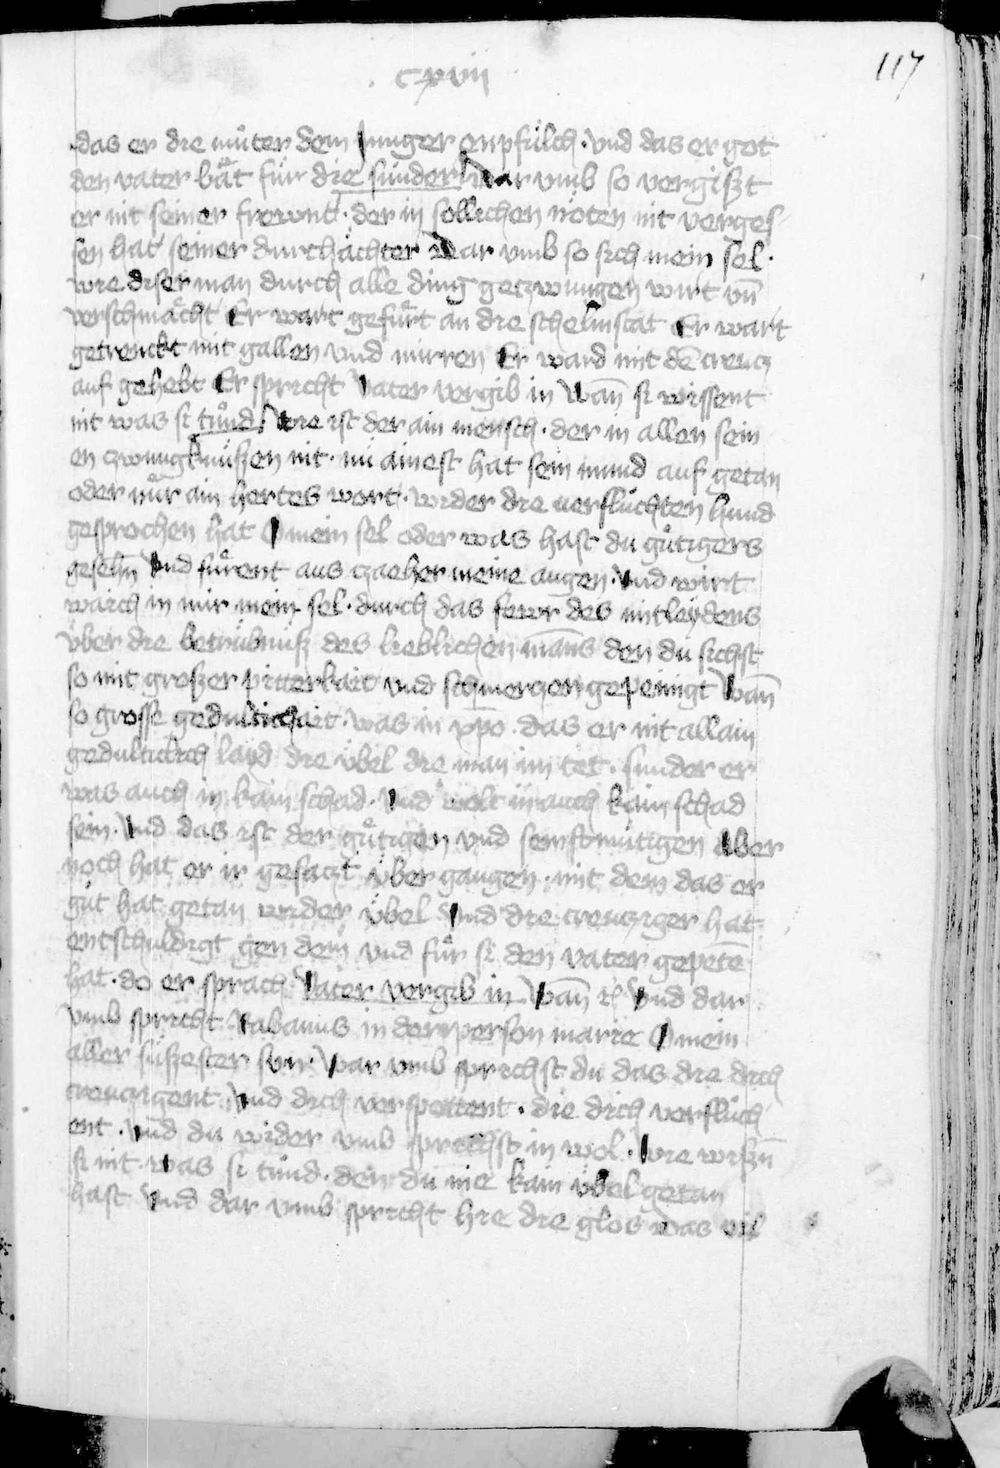 cxvii
117
das er die muͤter dem Junger enpfulch · Und das er got
den vater baͤt fuͤr die sunder Dar vmb so vergiszt
er nit seiner frewnt · der in sollichen nöten nit verges
sen hat seiner durchächter Dar vmb so sich mein sel ·
wie diser man durch alle ding getzwungen wirt vn̄
verschmaͤcht Er wart gefuͤrt an die schelmstat Er wart
getrenckt mit gallen vnd mirren Er ward mit dē creucz
auf gehebt Er spricht Vater vergib in Wan̄ si wissent
nit was si tuͦnd Wie ist der ain mensch · der in allen sein
en czwungknuͤszen nit · nu ainest hat sein mund auf getan
oder nuͤr ain hertes wort · wider die verfluchten hund
gesprochen hat O mein sel oder was hast du guͤtigers
gesehn̄ Vnd fuͤrent aus czaeher meine augen · Vnd wirt
waich in mir mein sel · durch das fewr des mitleydens
vber die betrubnusz des lieblichen man̄s den du sichst
so mit groszer pitterkait vnd schmerczen gepeinigt Wan̄
so grosse gedulticikait · was in xp̄o · das er nit allain
gedulticlich layd die vbel die man im tet · sunder er
was auch in kain schad · Vnd wolt in auch kain schad
sein · Vnd das ist der guͤtigen vnd semftmuͤtigen Aber
noch hat er ir gesaczt vber gangen · mit dem das er
guͤt hat getan wider vbel Vnd die creucziger hat
entschuldigt gen dem vnd fuͤr si den vater gepetē
hat · do er sprach Vater vergib in Wan̄ etc̄ Vnd dar
vmb spricht Rabanus in der person marie O mein
aller suszester sun · War vmb sprichst du das die dich
creuczigent Vnd dich verspottent · die dich verfluch
ent · Vnd du wider vmb sprechst in wol · Wie wiszn̄
si nit was si tuͦnd · den du nie kain vbel getan
hast Vnd dar vmb spricht hie die glos was vil